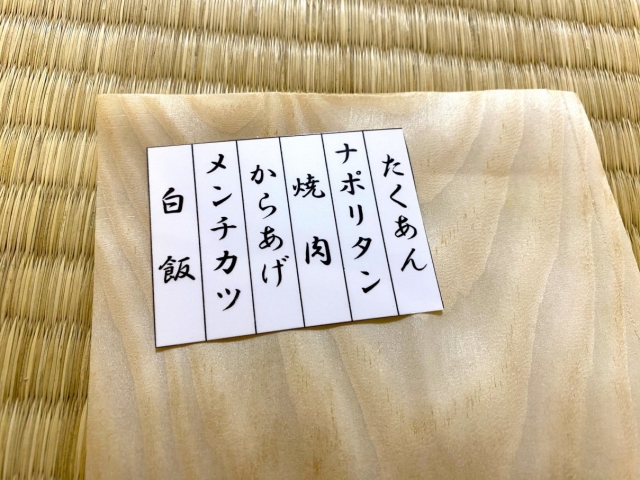 たくあん
ナポリタン
焼肉
からあげ
メンチカツ
白飯